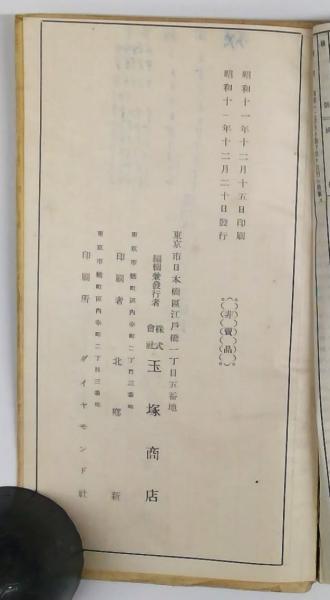 昭和十一年十二月十五日印刷
昭和十一年十二月二十日發行
非賣品
東京市日本橋區江戸橋一丁目五番地
編輯兼發行者 株式會社 玉塚商店
東京市麹町區内幸町二丁目三番地
印刷者 北郷新
東京市麹町區内幸町二丁目三番地
印刷所 ダイヤモンド社